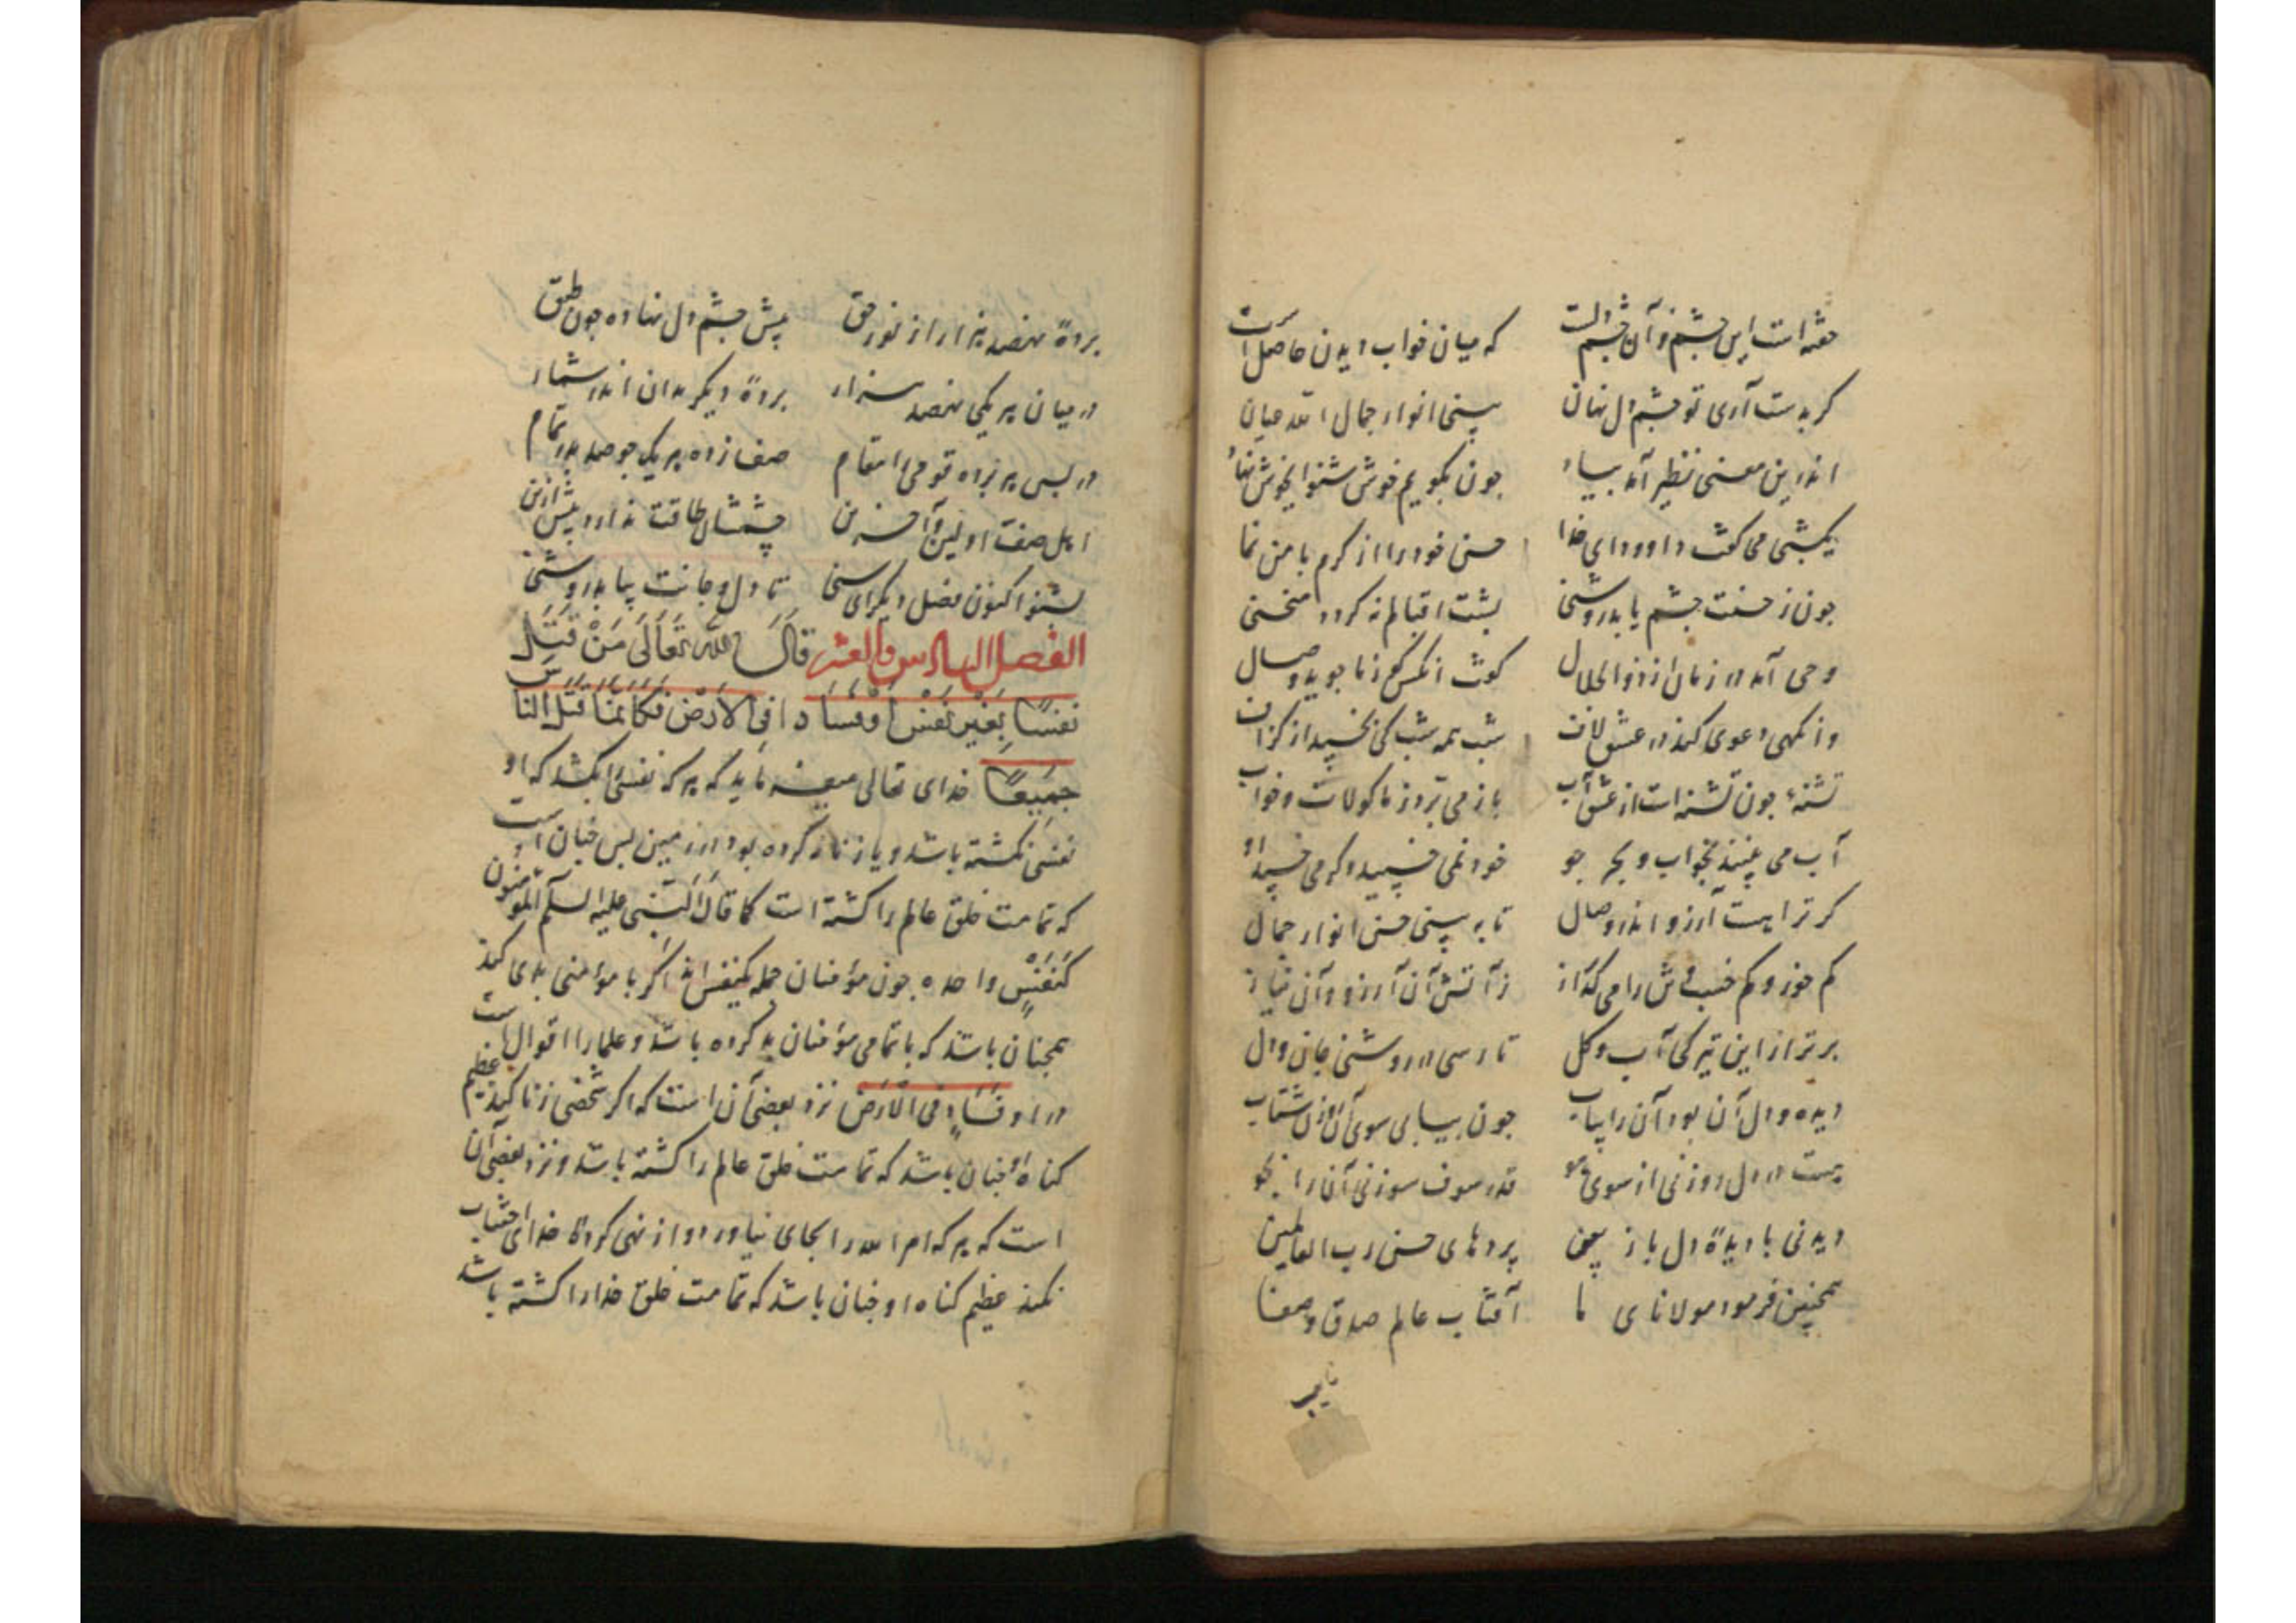 خفته است این چشم و آن چشم دلست که میان خواب دیدن حاصل است
کر بدست آری تو چشم دل نهان بینی انوار جمال الله عیان
اندرین معنی نظیر آمد بیاد چون بکویم خوش شنو ای خوش نهاد
یکشبی می کفت داود ای خدا حسن خود را از کرم با من نما
چون ز حسنت چشم یابد روشنی پشت اقبالم نکردد منحنی
وحی آمد در زمان از ذو الجلال کفت انکس کو ز ما جوید وصال
وانکهی دعوی کند در عشق لاف شب همه شب کی بخسپد از کزاف
تشنهٔ چون تشنه است از عشق آب باز می برد ز ماکولات و خواب
آب می بیند بخواب و بحر جو خود نمی خسپید و کر می خسپد او
کر ترا هست آرزو اندر وصال تا به بینی حسن انوار جمال
کم خور و کم خسب خوش را می کداز ز آتش آن آرزو و آن نیاز
برتر از این تیرکی آب و کل تا رسی در روشنی جان و دل
دیده دل آن بود آن را بیاب چون بیابی سوی آن روزن شتاب
هست در دل روزنی از سوی هو قدر سوف سوزنی آن را بجو
دیدنی با دیدهٔ دل باز بین پردهای حسن رب العالمین
همچنین فرمود مولانای ما آفتاب عالم صدق و صفا
پردهٔ نهصد هزار از نور حق پیش چشم دل نهاده چون طبق
در میان هر یکی نهصد هزار پردهٔ دیکر بدان اندر شمار
در پس هر پرده قومی را مقام صف زده هر یک چو صد بدر تمام
اهل صف اولین و آخرین چشمشان طاقت ندارد بیش ازین
بشنو اکنون فصل دیکر ای سنی تا دل و جانت بیابد روشنی
الفصل السادس والعشر قَالَ الله تَعَالَى مَنْ قَتَلَ
نَفْسًا بِغَيْرِ نَفْسٍ اَوْ فَسَادٍ فِى الْاَرْضِ فَكَاَنَّمَا قَتَلَ النَّاسَ
جَمِيعًا خدای تعالی میفرماید که هر که نفسی بکشد که او
نفسی نکشته باشد و یا زنا نکرده بود در زمین پس چنان است
که تمامت خلق عالم را کشته است کما قال النبی علیه السلم المؤمنون
کنفسٍ واحده چون مؤمنان جمله یکنفس اند اکر با مؤمنی بدی کند
همچنان باشد که با تمامی مؤمنان بد کرده باشد و علما را اقوال است
در او فسادٍ فی الارض نزد بعضی آن است که اکر شخصی زنا کند عظیم
کناه او چنان باشد که تمامت خلق عالم را کشته باشد و نزد بعضی آن
است که هر که امر الله را بجای نیاورد و از نهی کردهٔ خدای اجتناب
نکند عظیم کناه او چنان باشد که تمامت خلق خدا را کشته باشد